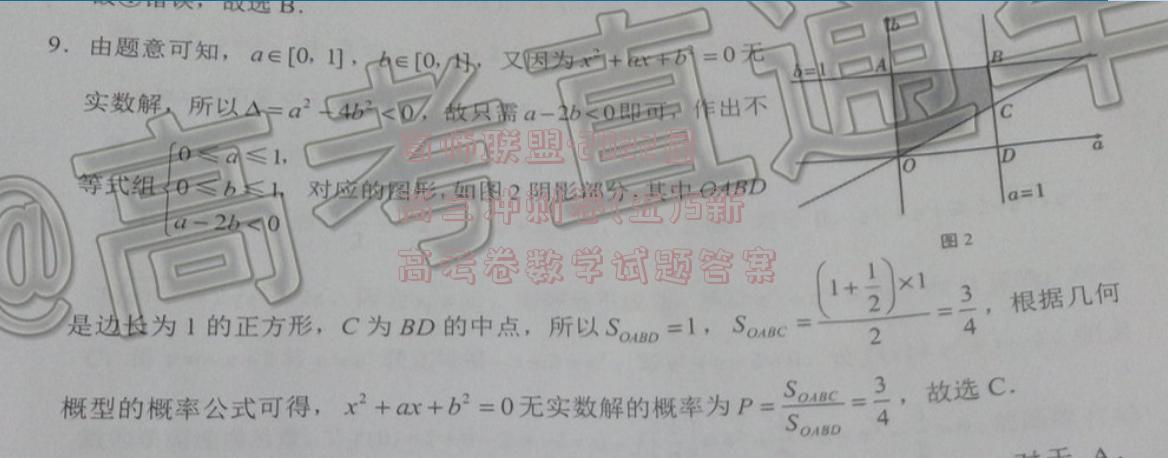 故选 B.
9. 由题意可知，a∈[0, 1]，b∈[0, 1]，又因为 x²+ax+b²=0 无
b
b=1
A
B
实数解，所以 Δ=a²-4b²<0，故只需 a-2b<0 即可，作出不
C
O
D
a
a=1
等式组 {0≤a≤1, 0≤b≤1, a-2b<0 对应的图形，如图 2 阴影部分，其中 OABD
图 2
是边长为 1 的正方形，C 为 BD 的中点，所以 S_{OABD}=1，S_{OABC}=\frac{(1+\frac{1}{2})×1}{2}=\frac{3}{4}，根据几何
概型的概率公式可得，x²+ax+b²=0 无实数解的概率为 P=\frac{S_{OABC}}{S_{OABD}}=\frac{3}{4}，故选 C.
对于 A,
@高考直通车
百师联盟·2022届
高三冲刺卷(五)5新
高考卷数学试题答案